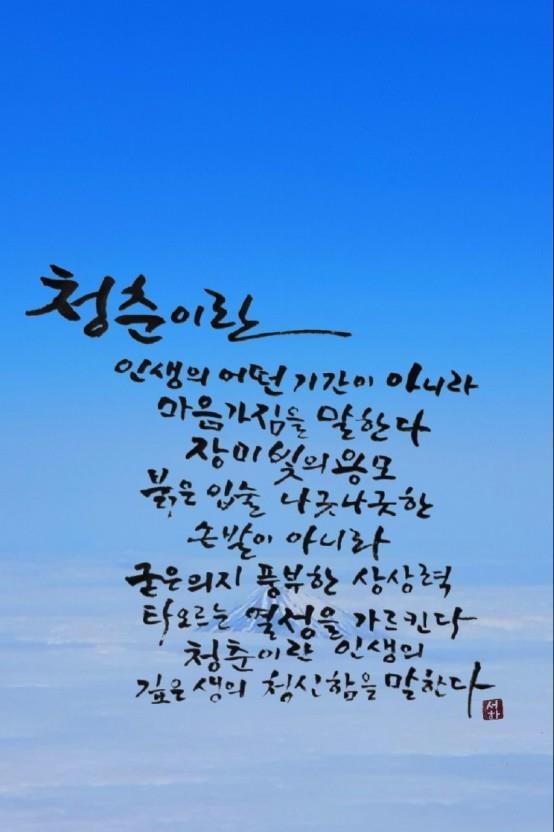 청춘이란
인생의 어떤 기간이 아니라
마음가짐을 말한다
장미빛의 용모
붉은 입술 나긋나긋한
손발이 아니라
굳은 의지 풍부한 상상력
타오르는 열성을 가르킨다
청춘이란 인생의
깊은 샘의 청신함을 말한다
서하